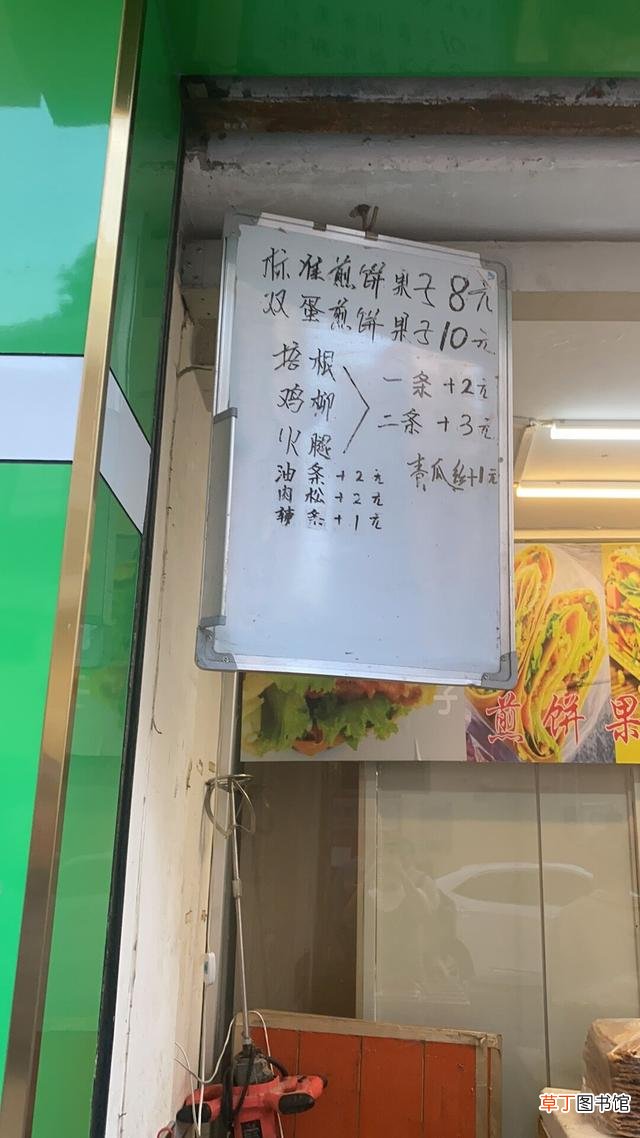 标准煎饼果子8元
双蛋煎饼果子10元
培根
鸡柳
火腿
一条+2元
二条+3元
油条+2元
肉松+2元
辣条+1元
青瓜丝+1元
子
煎饼果
草丁图书馆